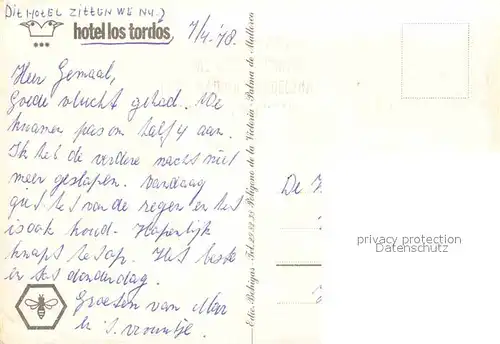 Dit HOTEL ZITTEN WE NU.)
hotel los tordos
7/4. '78.
Heer Gemaal,
Goede vlucht gehad. We
kwamen pas om half 4 aan.
Ik heb de verdere nacht niet
meer geslapen. Vandaag
giet het van de regen en het
is ook koud. Hopenlijk
knapt het op. Het beste
en tot donderdag.
Groeten van
's vrouwtje.
De
Edic. Bohigas Tel. Polígono de la Victoria - Palma de Mallorca
privacy protection
Datenschutz